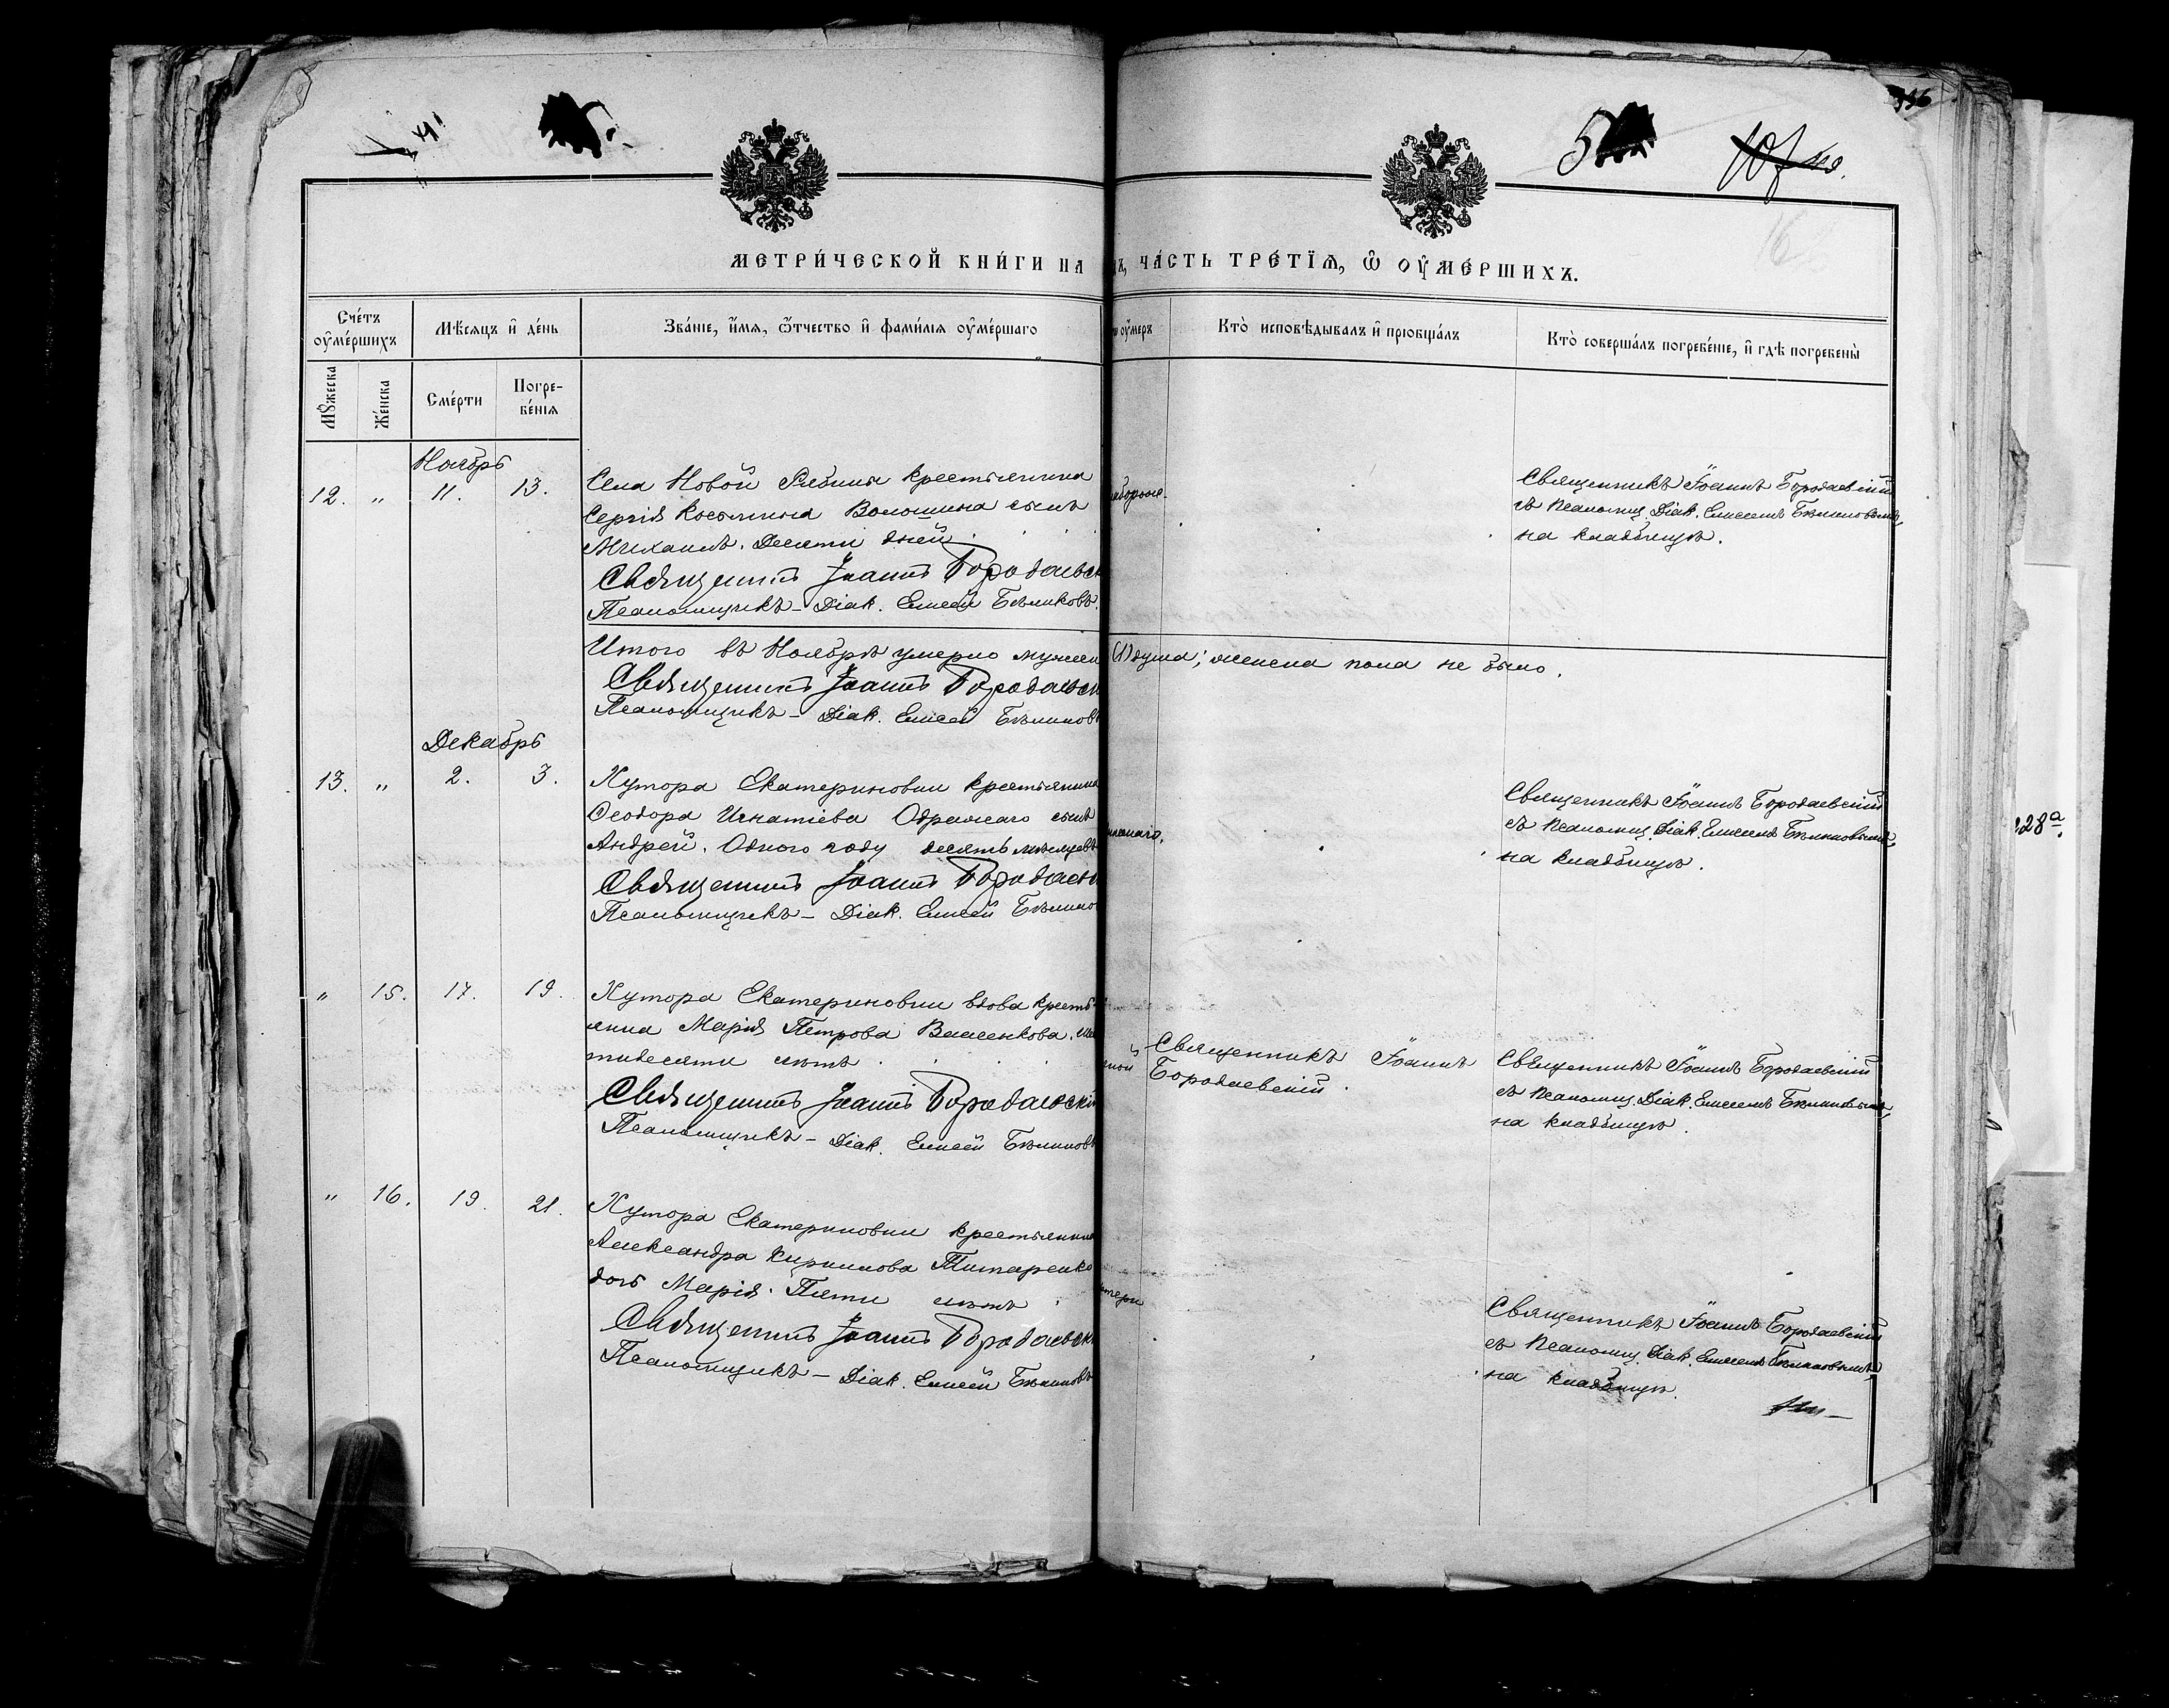 156
5
107
110.
16
МЕТРИ́ЧЕСКОЙ КНИ́ГИ НА
Ъ, ЧА́СТЬ ТРЕ́ТЇѦ, Ѡ҆ ОУ҆МЕ́РШИХЪ.
Сче́тъ оу҆ме́ршихъ
Мѣ́сѧцъ и҆ де́нь
Зва́нїе, и҆́мѧ, ѻ҆́тчество и҆ фами́лїѧ оу҆ме́ршаго
оу҆́меръ
Кто̀ исповѣ́дывалъ и҆ прїобща́лъ
Кто̀ соверша́лъ погребе́нїе, и҆ гдѣ̀ погребены̀
Мꙋ́жеска
Же́нска
Сме́рти
Погре-
бе́нїѧ
Ноябрь
12. " 11. 13.
Села Новой Рябины крестьянина
Сергія Косьмина Волошина сынъ
Михаилъ. Десяти дней.
Священникъ Іоаннъ Бородаевск
Псаломщикъ – Діак. Елисей Бѣликовъ.
Священникъ Іоаннъ Бородаевскій
съ псаломщ. Діак. Елисеемъ Бѣликовымъ,
на кладбищѣ.
Итого въ Ноябрѣ умерло мужеск
(1) душа; женска пола не было.
Священникъ Іоаннъ Бородаевск
Псаломщикъ – Діак. Елисей Бѣликовъ
Декабрь
13. " 2. 3.
Хутора Екатериновки крестьянина
Ѳеодора Игнатіева Одражаго сынъ
Андрей. Одного году десять мѣсяцевъ
Священникъ Іоаннъ Бородаевск
Псаломщикъ – Діак. Елисей Бѣлико
Священникъ Іоаннъ Бородаевскій
съ псаломщ. Діак. Елисеемъ Бѣликовымъ,
на кладбищѣ.
" 15. 17. 19.
Хутора Екатериновки вдова кресть
янка Марія Петрова
тидесяти лѣтъ
Священникъ Іоаннъ Бородаевскій
Псаломщикъ – Діак. Елисей Бѣликовъ
Священникъ Іоаннъ
Бородаевскій.
Священникъ Іоаннъ Бородаевскій
съ псаломщ. Діак. Елисеемъ Бѣликовымъ,
на кладбищѣ.
" 16. 19. 21.
Хутора Екатериновки крестьянина
Александра Кирилова Титаренко
дочь Марія. Пяти лѣтъ
Священникъ Іоаннъ Бородаевск
Псаломщикъ – Діак. Елисей Бѣликовъ
Священникъ Іоаннъ Бородаевскій
съ псаломщ. Діак. Елисеемъ Бѣликовымъ,
на кладбищѣ.
128а.